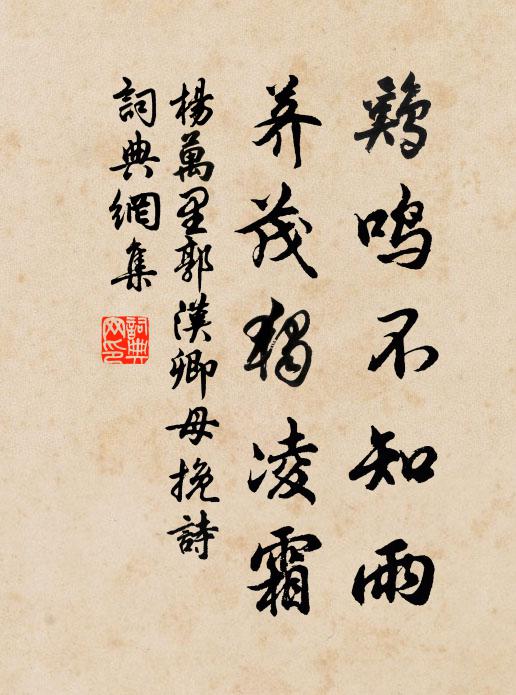 鷄鳴不知雨
荠茂獨凌霜
楊萬里郭漢卿母挽詩
詞典網集
詞典网印